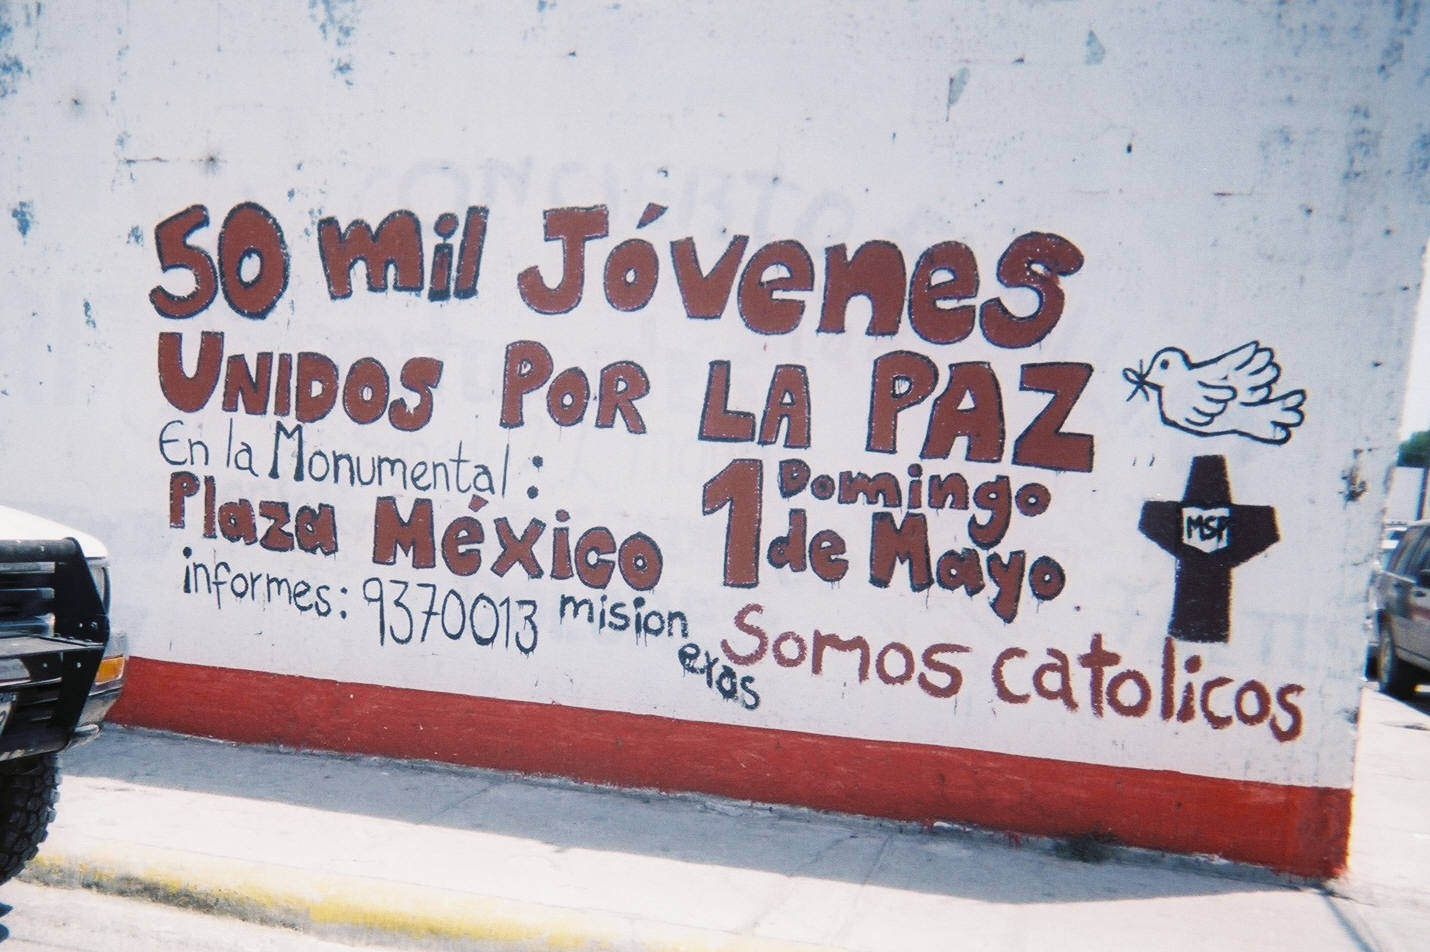 50 mil Jóvenes
UNIDOS POR LA PAZ
En la Monumental:
Plaza México
1 Domingo
de Mayo
informes: 9370013
mision
eras
Somos catolicos
MSP